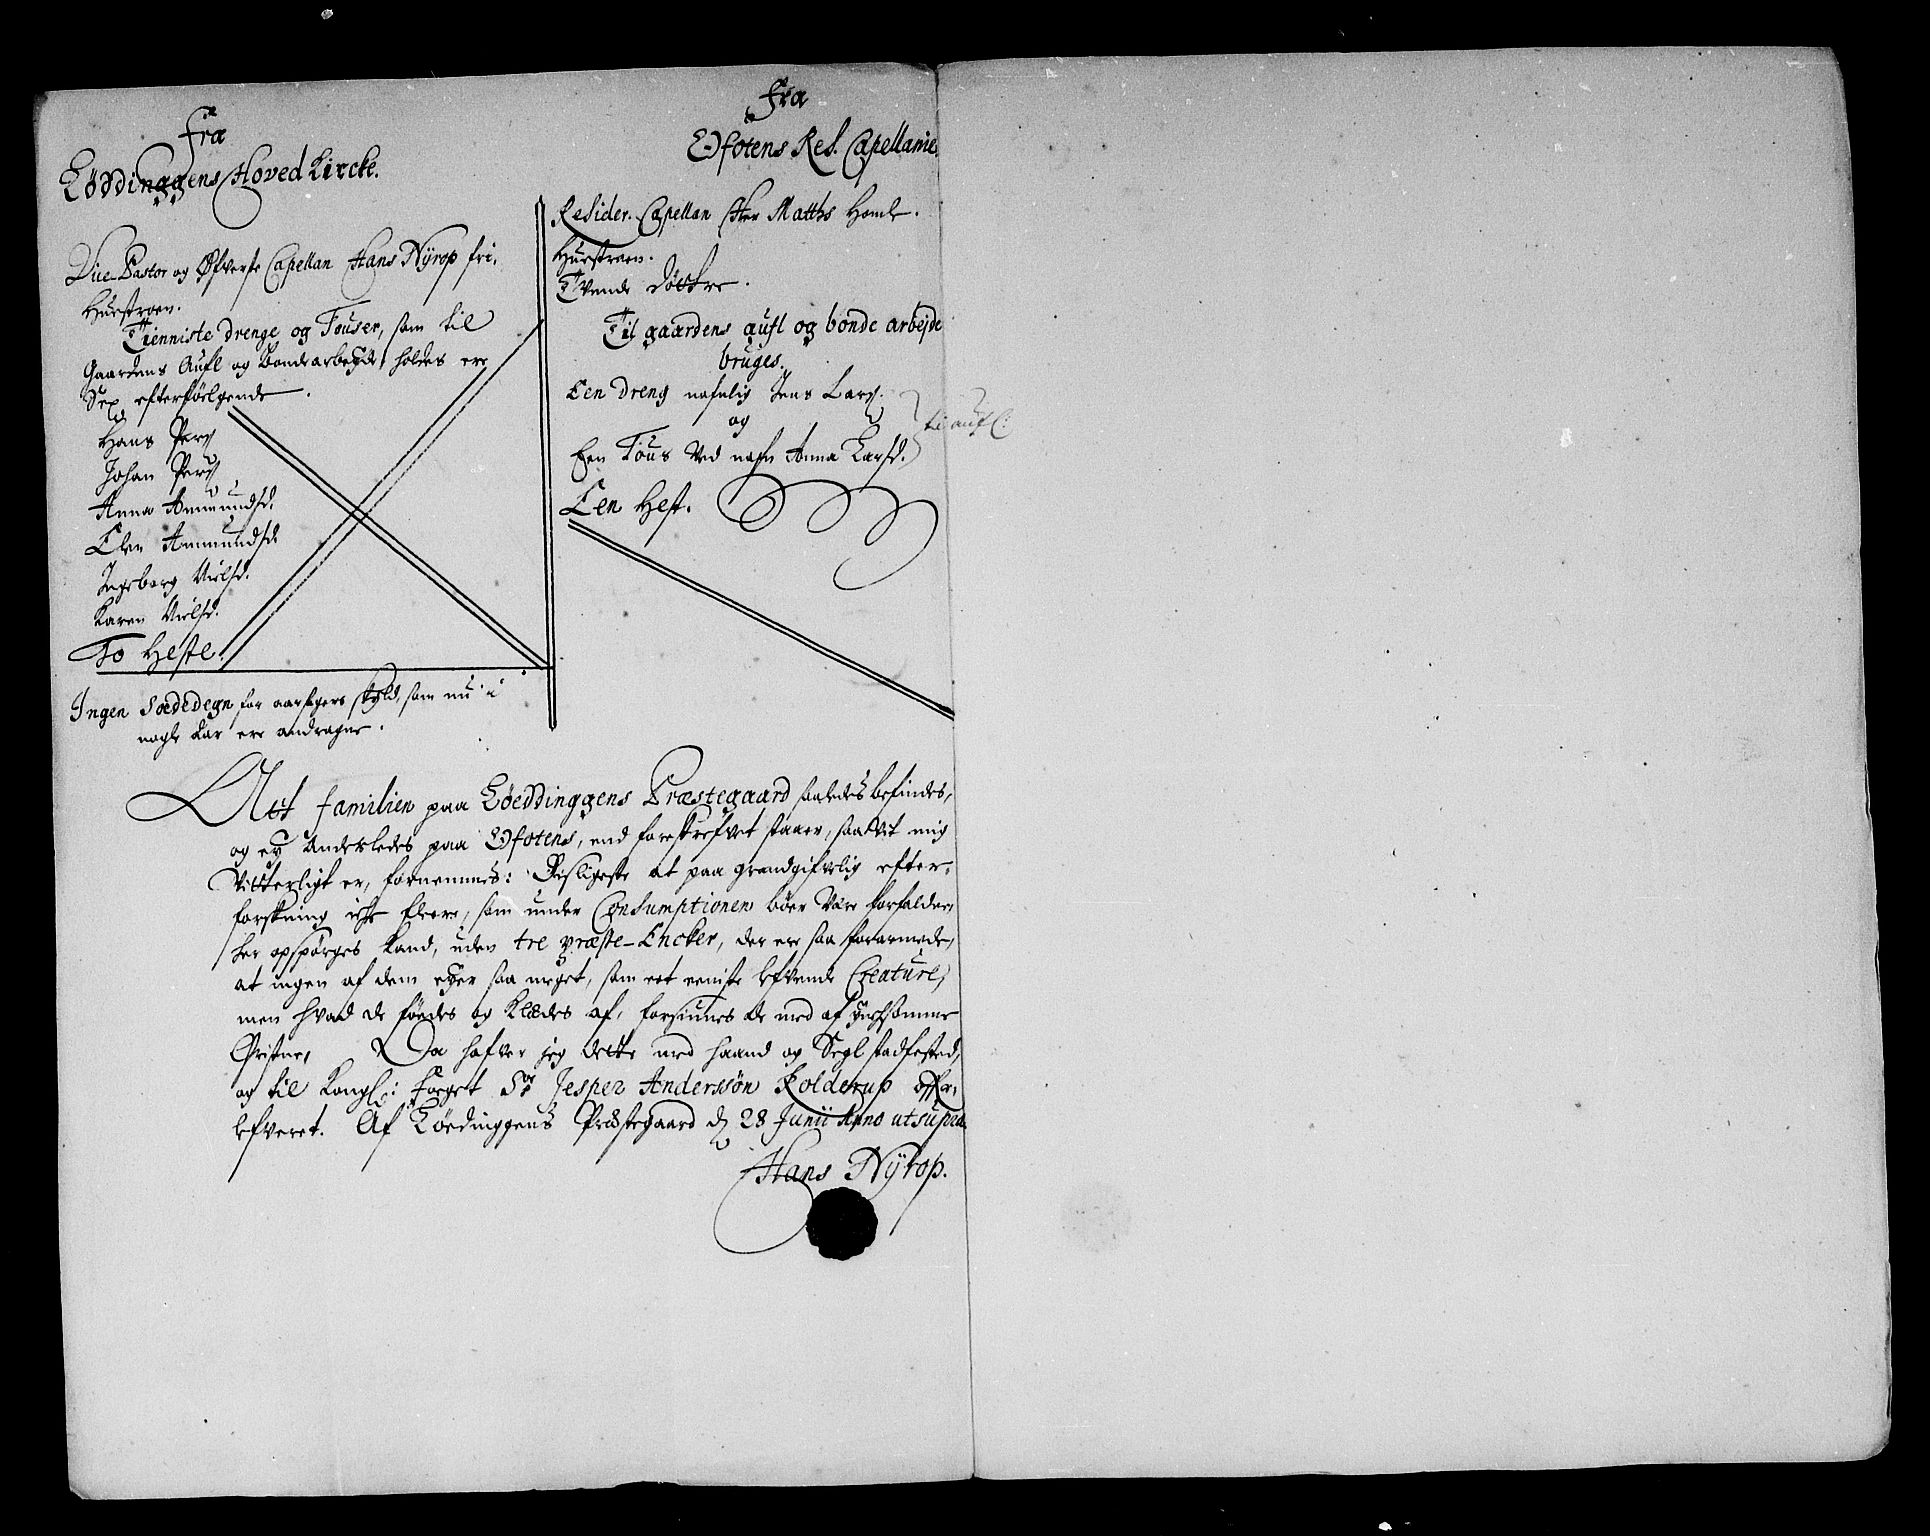 fra
Løddinggens Hoved Kircke.
Vice-Pastor og Øfverste Capellan Hans Nÿrop fri.
Hustroen.
Tienniste drenge og Touser, som til
Gaardens Aufl og Bondearbeyde holdes ere
Sex efterfølgende.
Hans Pers
Johan Pers
Anna Ammundsd.
Elen Ammundsd.
Ingeborg Nielsd.
Karen Nielsd.
To Heste.
Ingen Sædedegn for aarsagers skyld, som nu i
nogle Aar ere andragne.
fra
Ofotens Res. Capellanie.
Resider. Capellan Her Matths
Hustroen.
Tvende Døttre.
Til gaardens aufl og bonde arbejde
bruges.
Een Dreng nafnlig Jens Lars.
og
Een Tøus Ved nafn Anna Larsd.
til aufl:
Een Hest.
Att familien paa Løeddinggens Præstegaard saaledes befindes,
og ey Anderledes paa Ofotens, end foreskrefvet staaer, saavit mig
Vitterligt er, fornemmes: Desligeste at paa grandgifvelig efter-
forskning icke fleere, som under Consumptionen bøer Være forfalden,
her opspørges kand, uden tre præste-Encker, der ere saa forarmede,
at ingen af dem eyer saa meget, som eet eeniste lefvende Creature,
men hvad de føedes og Klædes af, forsiunes de med af
Christne, Da hafver jeg dette med haand og Segl stadfested,
og til Kongl: foeget Sr Jesper Anderssøn Kolderup
lefveret. Af Løedinggens Præstegaard d 28 Junii Anno ut supra
Hans Nÿrop.